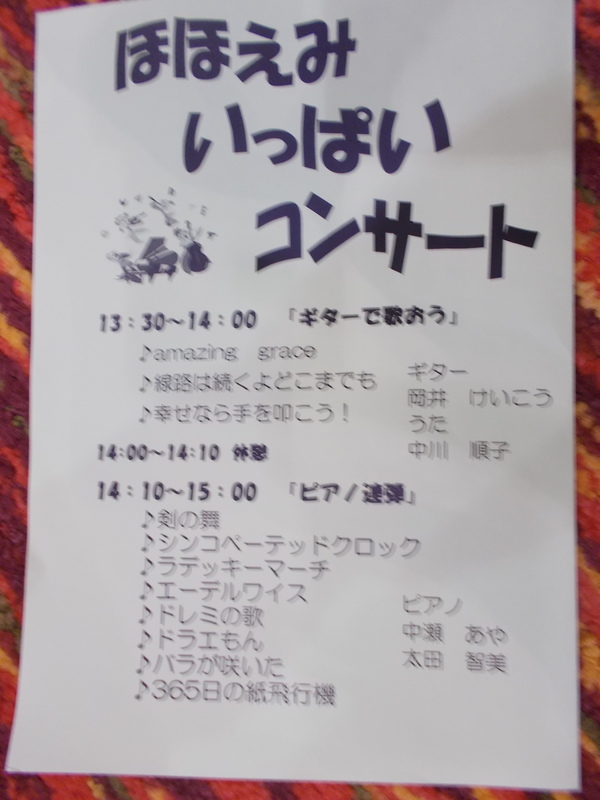 ほほえみ
いっぱい
コンサート
13：30～14：00　「ギターで歌おう」
♪amazing　grace
♪線路は続くよどこまでも
♪幸せなら手を叩こう！
ギター
岡井　けいこう
うた
中川　順子
14:00～14:10　休憩
14：10～15：00　「ピアノ連弾」
♪剣の舞
♪シンコペーテッドクロック
♪ラデッキーマーチ
♪エーデルワイス
♪ドレミの歌
♪ドラエもん
♪バラが咲いた
♪365日の紙飛行機
ピアノ
中瀬　あや
太田　智美